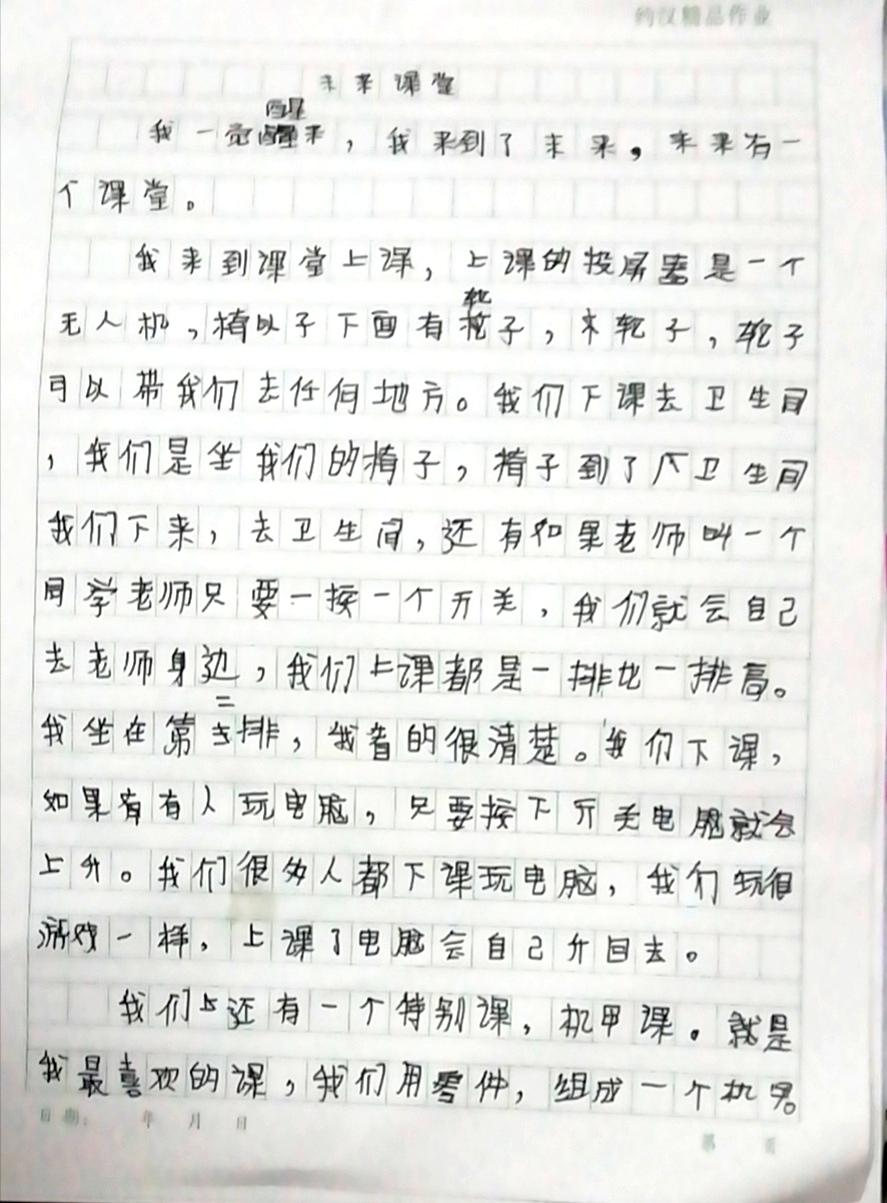 约汉精品作业
未来课堂
醒
我一觉醒来，我来到了未来，未来有一
个课堂。
我来到课堂上课，上课的投屏器是一个
轮
无人机，椅以子下面有子，木轮子，轮子
可以带我们去任何地方。我们下课去卫生间
，我们是坐我们的椅子，椅子到了卫生间
我们下来，去卫生间，还有如果老师叫一个
同学老师只要一按一个开关，我们就会自己
去老师身边，我们上课都是一排比一排高。
二
我坐在第排，我看的很清楚。我们下课，
如果有有人玩电脑，只要按下开关电脑就会
上升。我们很多人都下课玩电脑，我们玩很
游戏一样，上课了电脑会自己升回去。
我们上还有一个特别课，机甲课。就是
我最喜欢的课，我们用零件，组成一个机男。
日期： 年 月 日
第 页